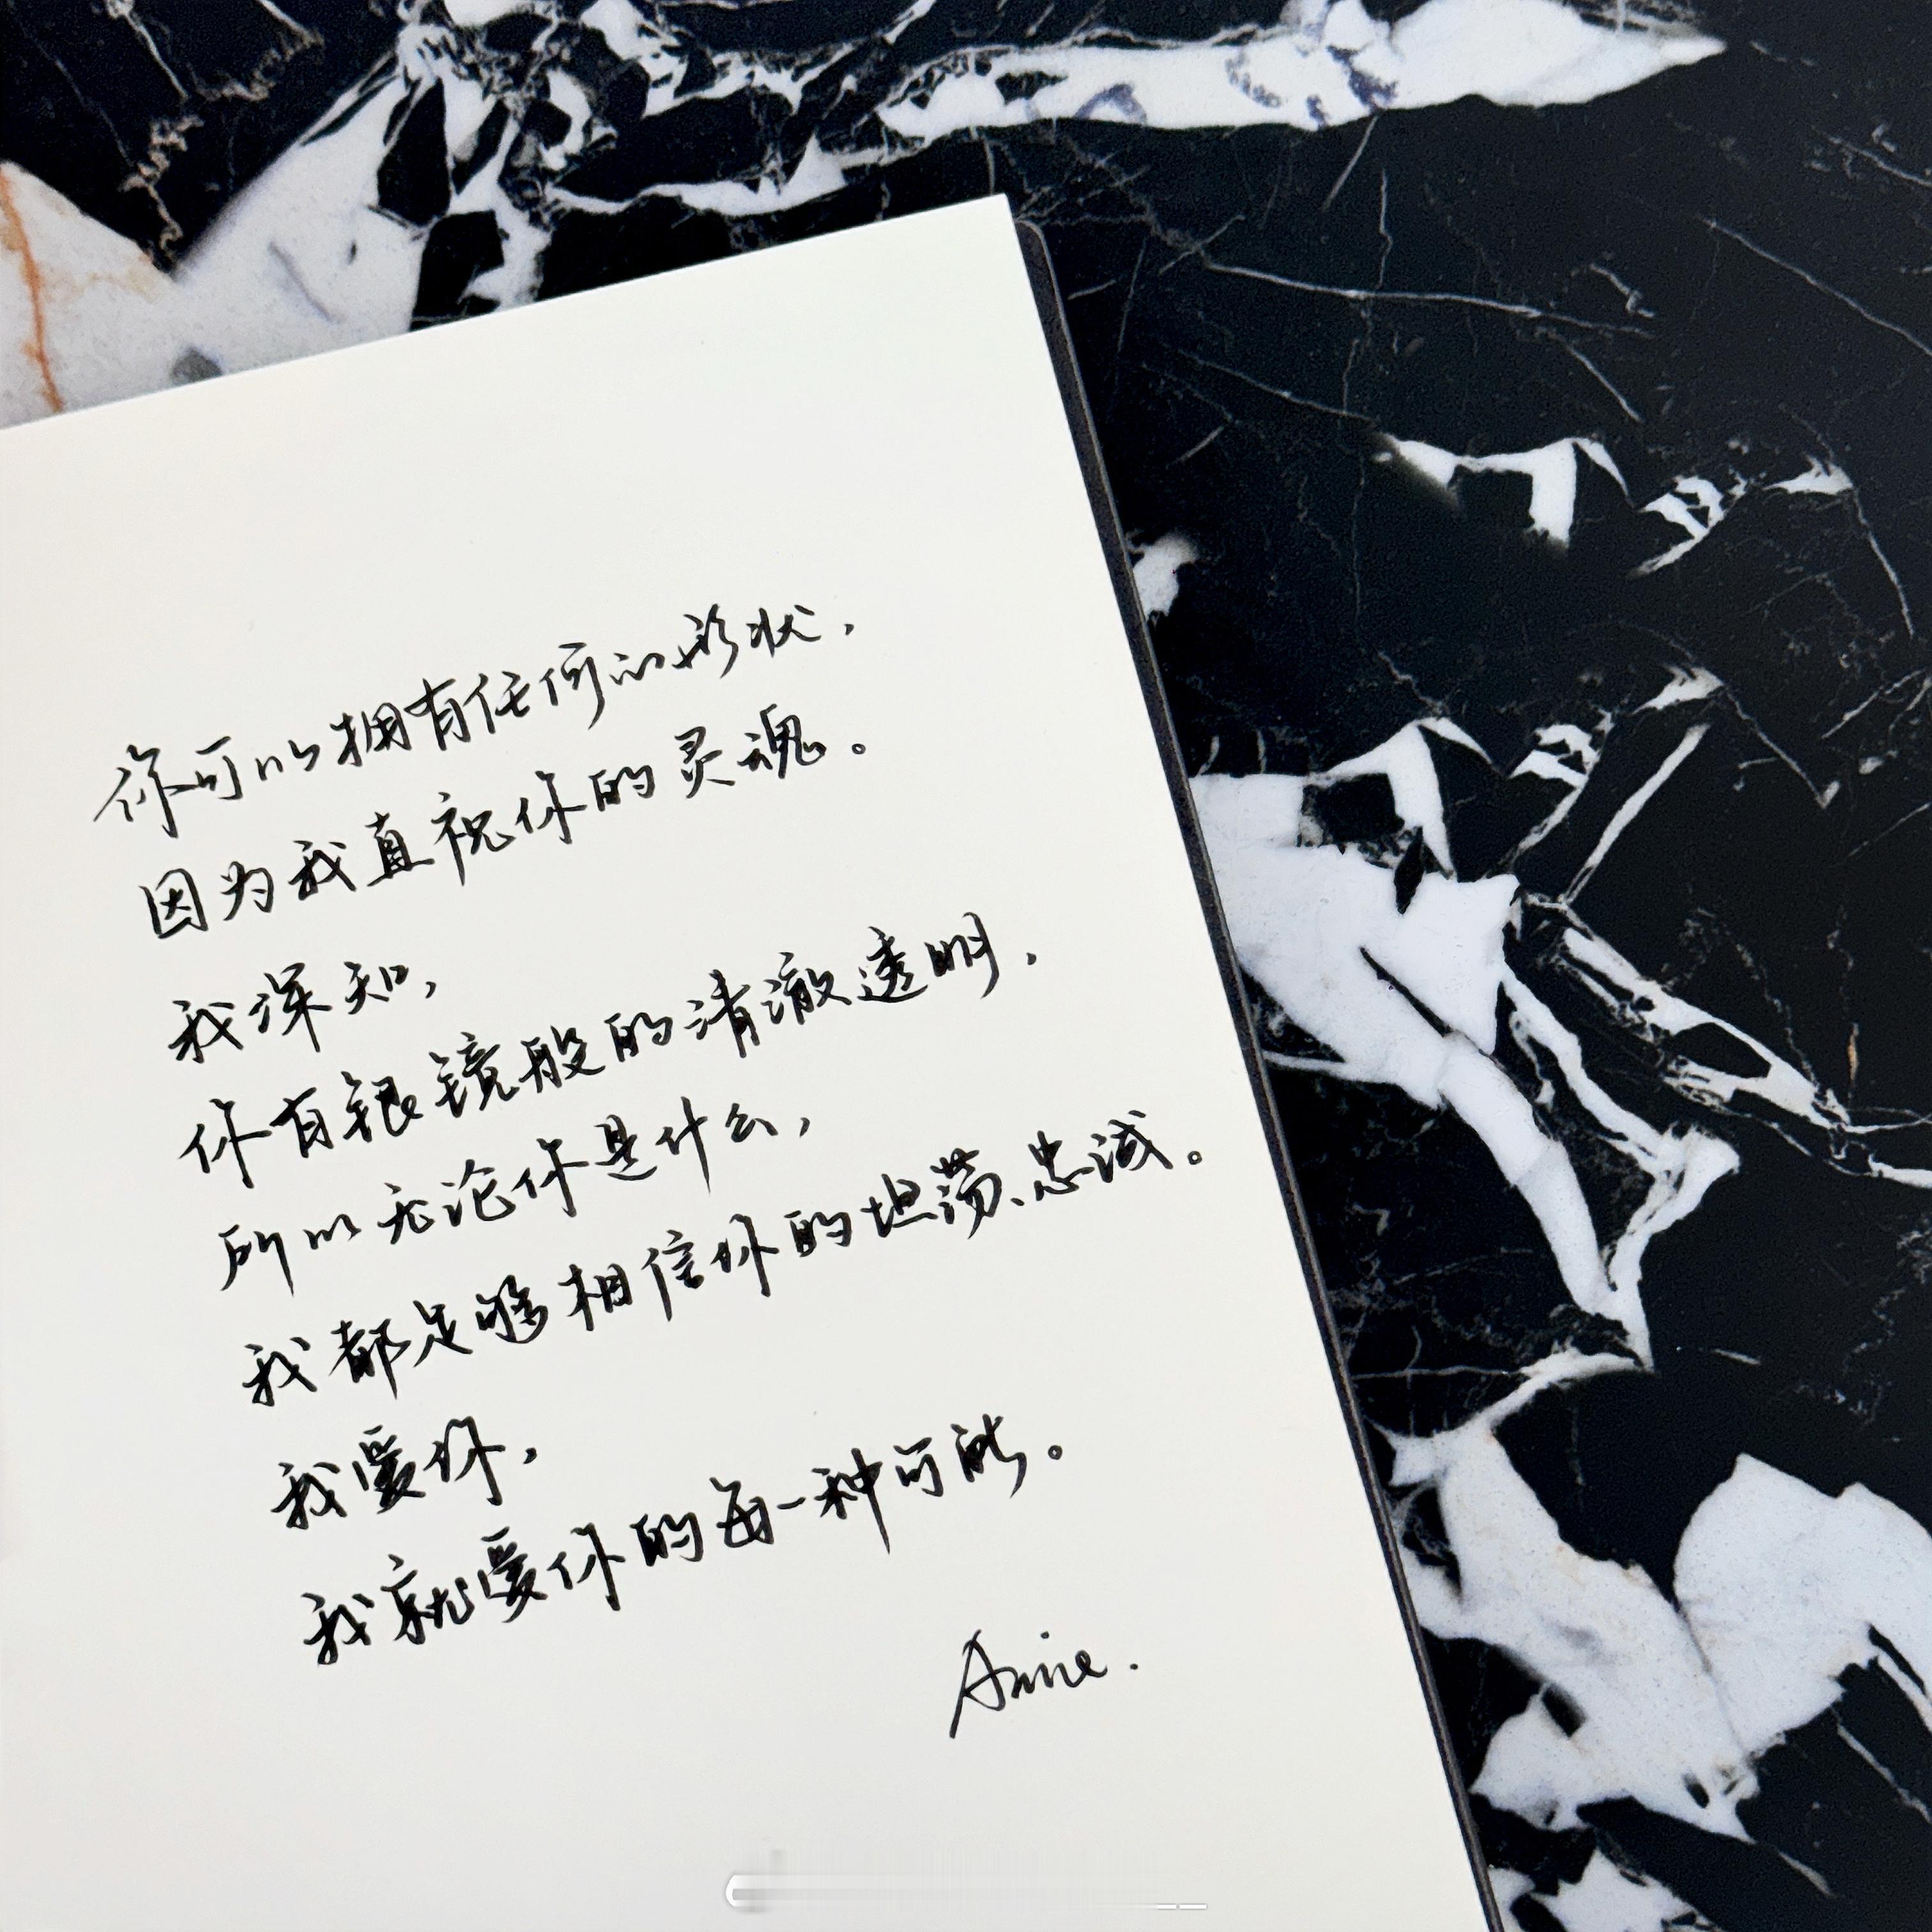 你可以拥有任何的形状，
因为我直视你的灵魂。
我深知，
你有银镜般的清澈透明，
所以无论你是什么，
我都足够相信你的坦荡、忠诚。
我爱你，
我就爱你的每一种可能。
Annie.